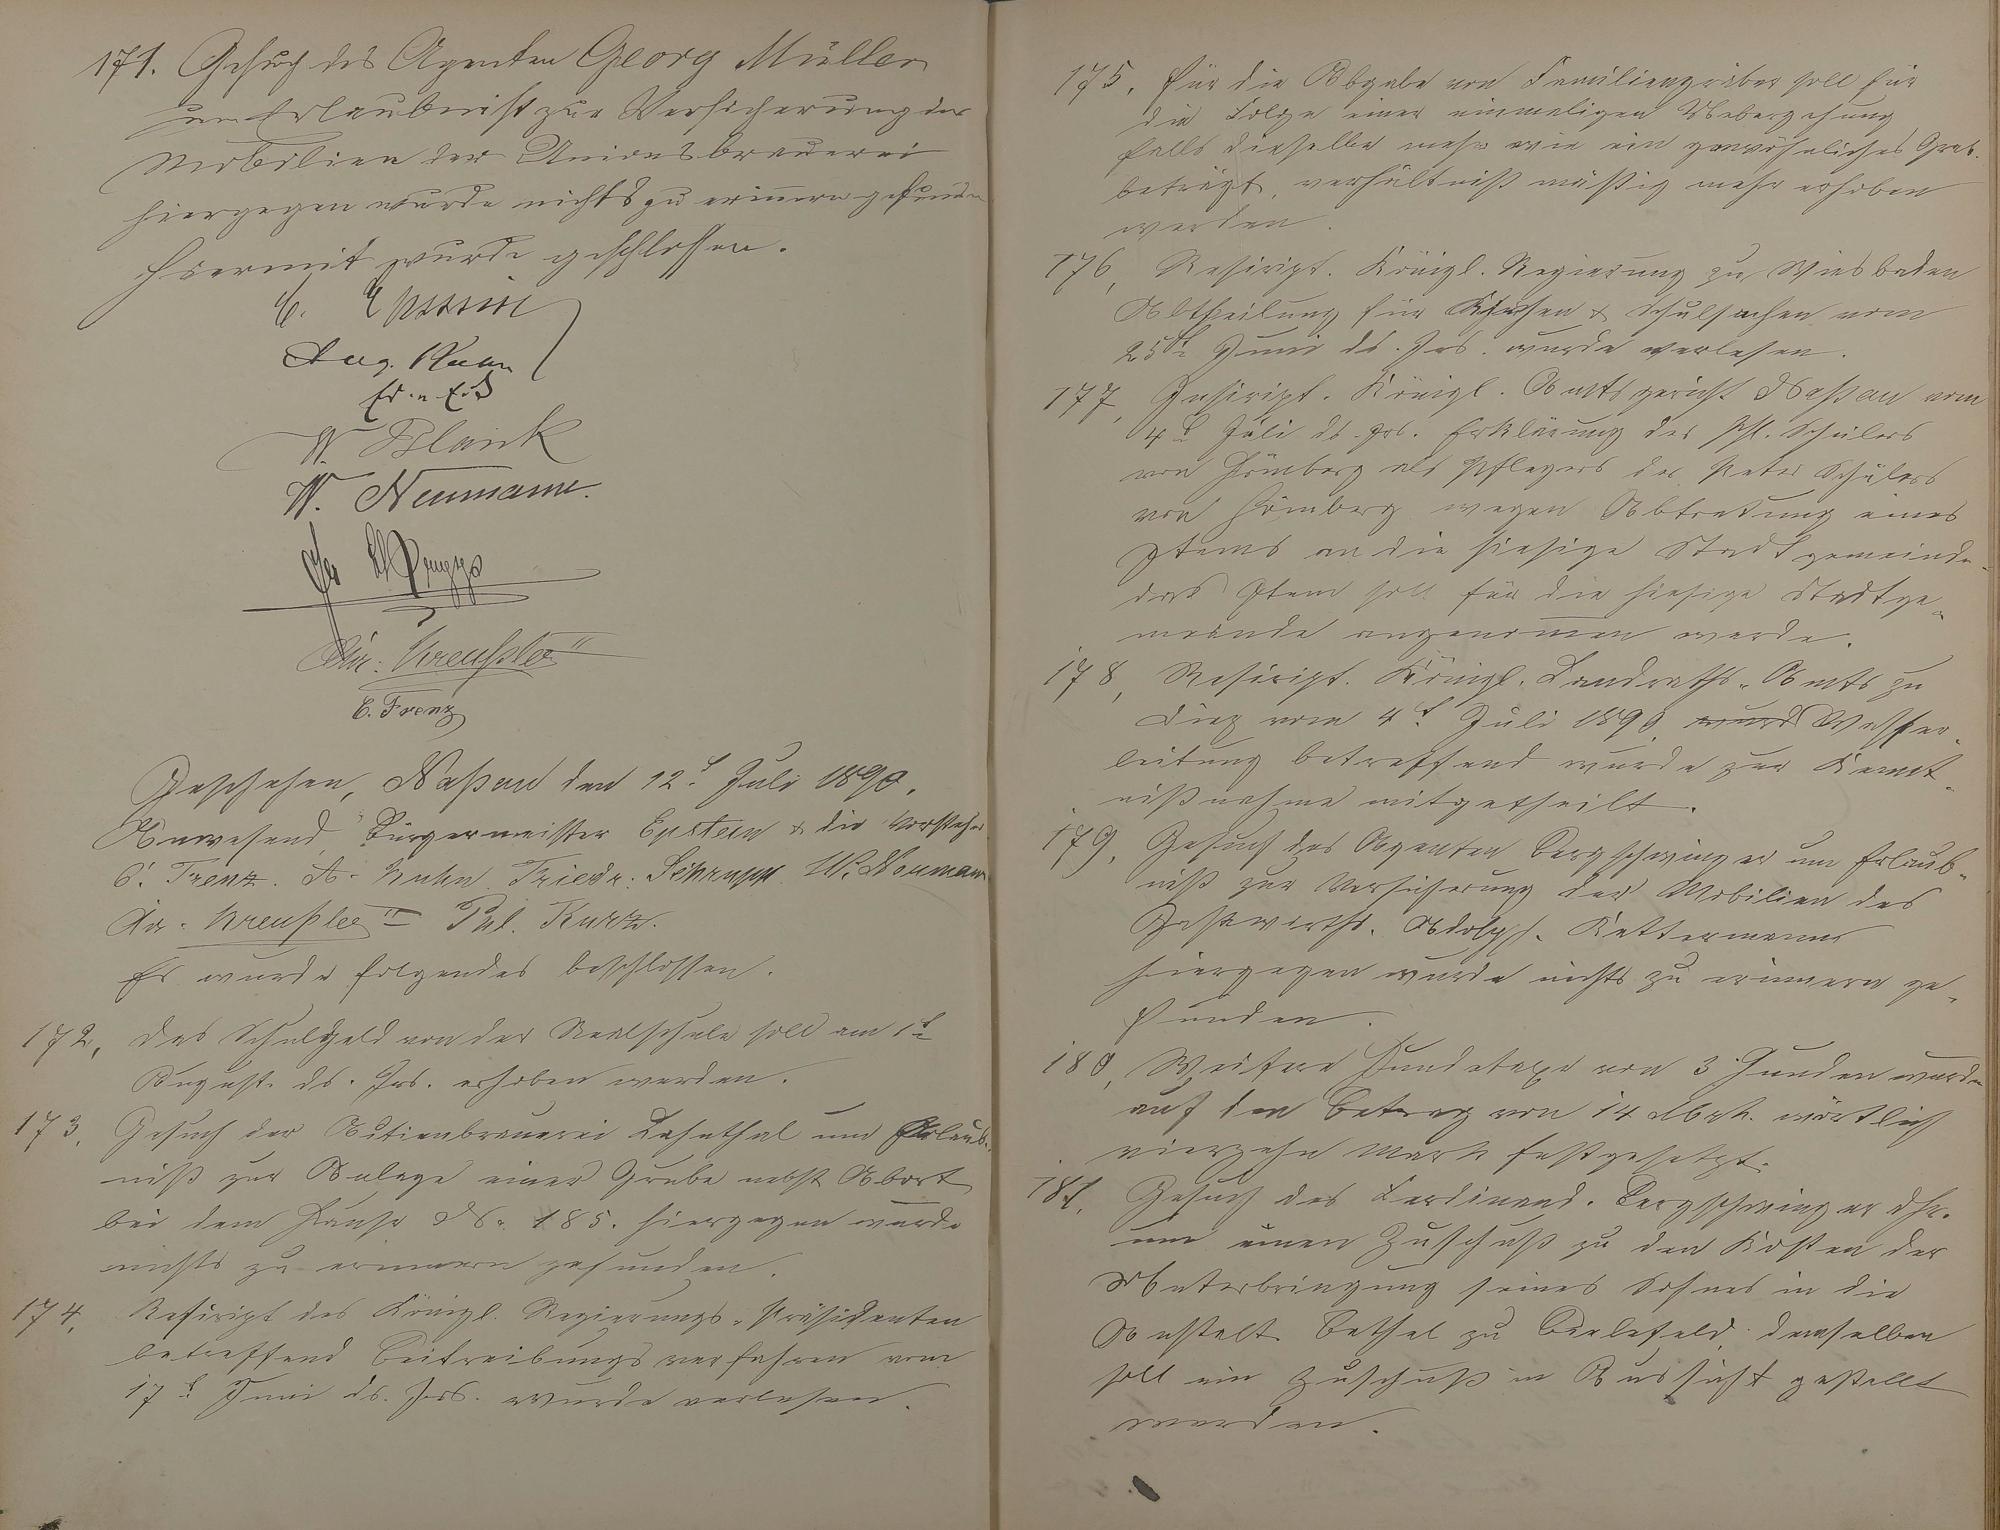 171. Gesuch des Agenten Georg Müller
um Erlaubniß zur Versicherung der
Mobilien der Unionsbrauerei
hiergegen wurde nichts zu erinnern gefunden
Hiermit wurde geschlossen.
Aug. Kuhn
W. Blank
W. Neumann.
Chr: Kreußler II
C. Trenz
Geschehen, Naßau den 12t. Juli 1890.
Anwesend, Bürgermeister Epstein & die Vorsteher
C. Trenz. A. Kuhn Friedr. Schrupp W. Neumann
Kreußler II Phl. Kurz.
Es wurde folgendes beschlossen.
172, Das Schulgeld von der Realschule soll am 1t
August ds. Jrs. erhoben werden.
173, Gesuch der Actienbrauerei Lahnthal um Erlaub-
niß zur Anlage einer Grube nebst Abort
bei dem Hause No. 185. hiergegen wurde
nichts zu erinnern gefunden.
174, Rescript des Königl. Regierungs-Präsidenten
betreffend Beitreibungsverfahren vom
17t Juni ds. Jrs. wurde verlesen.
175, Für die Abgabe von Familiengräber soll für
die Folge einer einmaligen Uebergehung
falls dieselbe mehr wie ein gewöhnliches Grab.
beträgt, verhältnißmäßig mehr erhoben
werden.
176, Rescript. Königl. Regierung zu Wiesbaden
Abtheilung für Kirchen & Schulsachen vom
25t Juni ds. Jrs. wurde verlesen.
177, Inscript. Königl. Amtsgericht Naßau vom
4t Juli ds. Jrs. Erklärung des Phl. Schülers
von Hömberg als Pflegers des Peter Schülers
von Hömberg wegen Abtretung eines
Items an die hiesige Stadtgemeinde-
das Item soll für die hiesige Stadtge-
meinde angenommen werde.
178, Rescript. Königl. Landraths-Amts zu
Diez vom 4t Juli 1890, Wasser-
leitung betreffend wurde zur Kennt-
nißnahme mitgetheilt.
179, Gesuch des Agenten Bergschwinger um Erlaub-
niß zur Versicherung der Mobilien des
Gastwirths. Adolph. Kettermann
hiergegen wurde nichts zu erinnern ge-
funden.
180, Weitere Hundetaxe von 3 Hunden wurde
auf den Betrag von 14 Mark. wörtlich
vierzehn Mark festgesetzt.
181, Gesuch des Ferdinand. Bergschwinger
um einen Zuschuß zu den Kosten der
Unterbringung seines Sohnes in die
Anstalt Bethel zu Bielefeld, demselben
soll ein Zuschuß in Aussicht gestellt
werden.